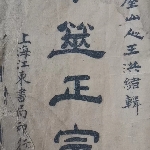 屋山人王洪緒輯
筮正宗
上海江東書局印行